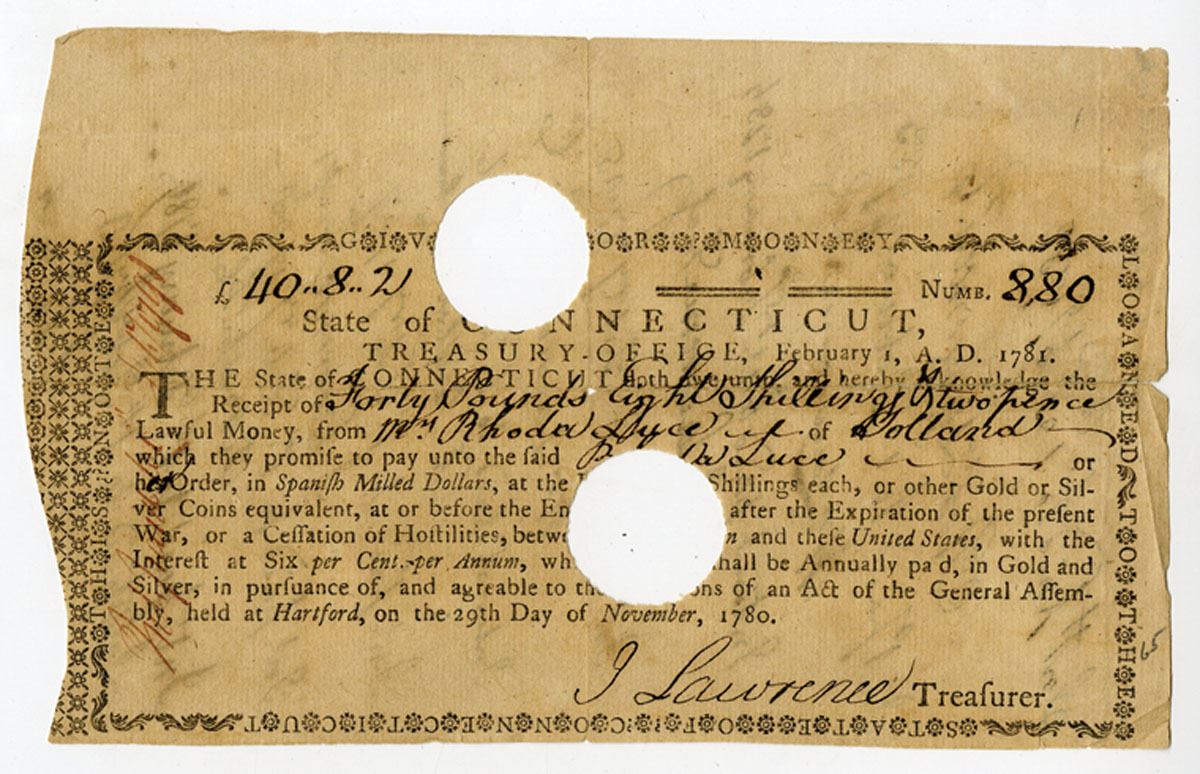 GIV OR MONEY
£ 40..8..2 NUMB. 880
State of CONNECTICUT,
TREASURY-OFFICE, February 1, A. D. 1781.
THE State of CONNECTICUT doth owe unto, and hereby acknowledge the
Receipt of Forty Pounds Eight Shillings & two pence
Lawful Money, from Mrs Rhoda Luce of Tolland
which they promiſe to pay unto the ſaid Luce or
her Order, in Spaniſh Milled Dollars, at the Shillings each, or other Gold or Sil-
ver Coins equivalent, at or before the En after the Expiration of the preſent
War, or a Ceſſation of Hoſtilities, betw n and theſe United States, with the
Intereſt at Six per Cent. per Annum, wh hall be Annually pa d, in Gold and
Silver, in purſuance of, and agreable to th ons of an Act of the General Aſſem-
bly, held at Hartford, on the 29th Day of November, 1780.
J Lawrence Treaſurer.
LOANED TO THE
STATE OF CONNECTICUT
THIS NOTE
65